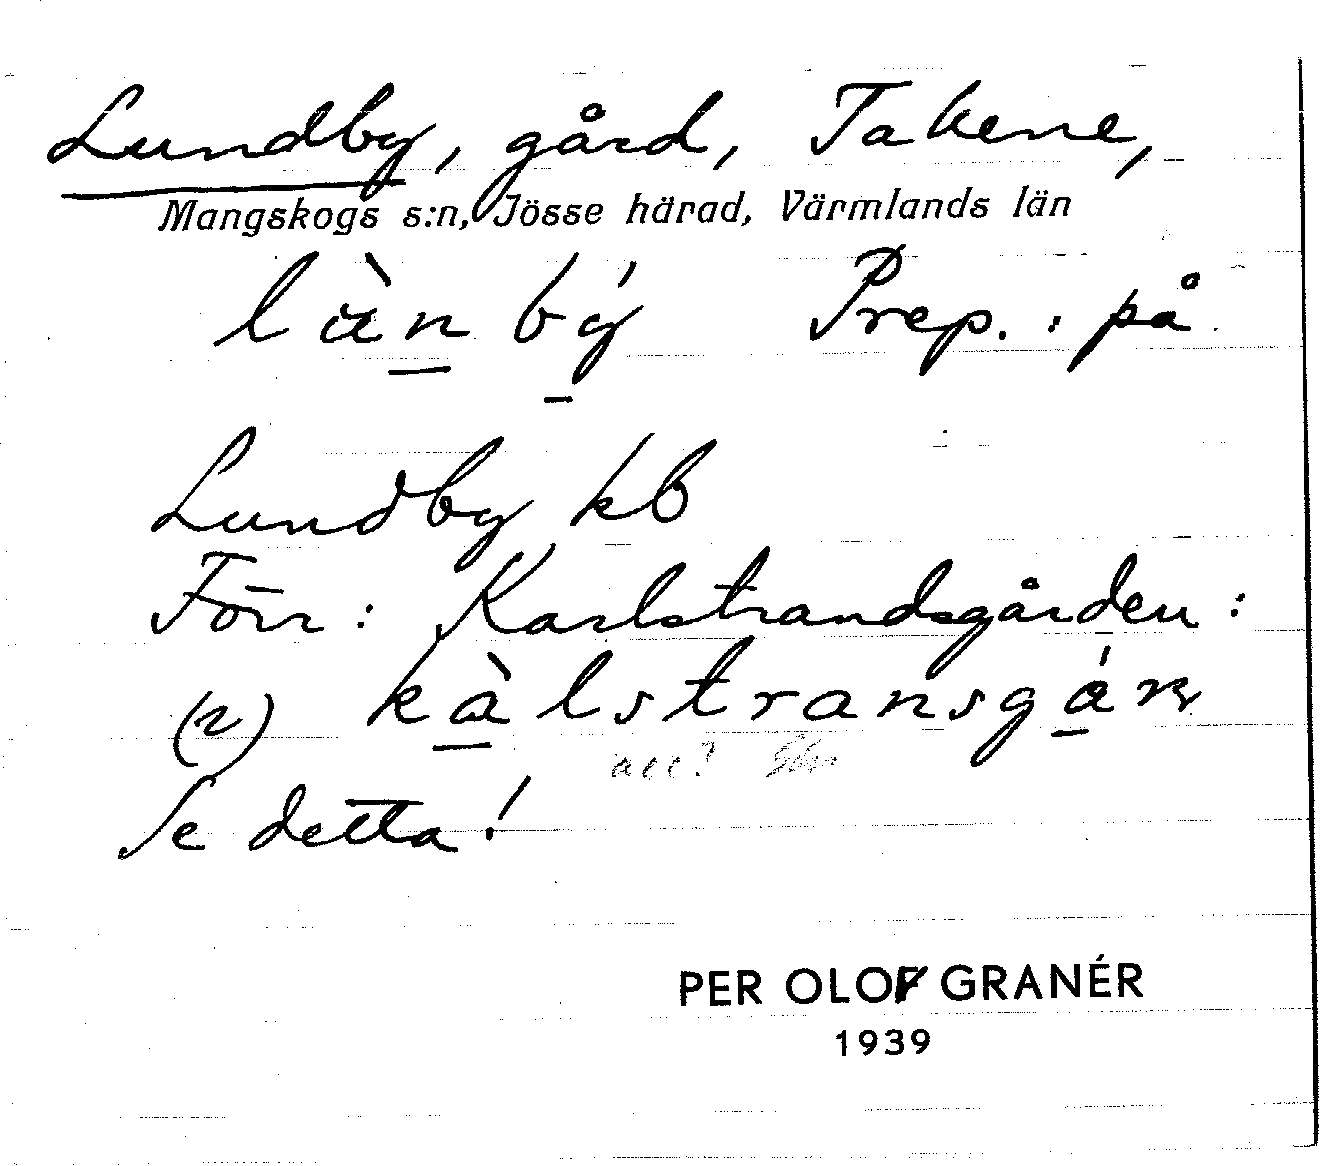 Lundby, gård, Takene,
Mangskogs s:n, Jösse härad, Värmlands län
lànbý Prep.: på
Lundby kb
Förr: Karlstrandsgården:
(r) kàlstransgán
acc?
Se detta!
PER OLOF GRANÉR
1939